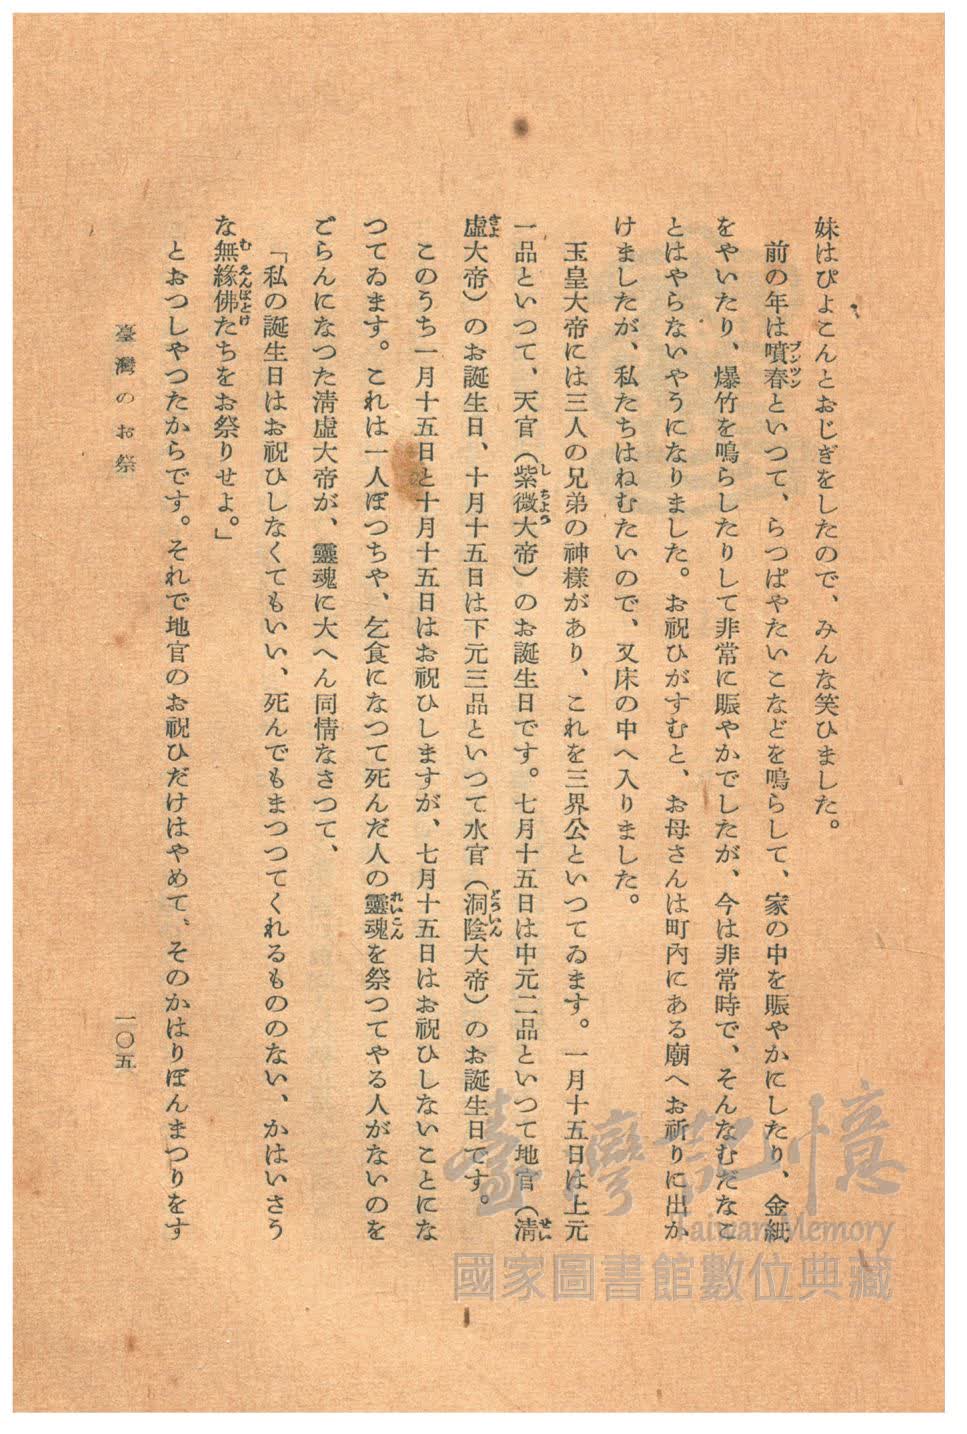 妹はぴよこんとおじぎをしたので、みんな笑ひました。
前の年は噴春といつて、らつぱやたいこなどを鳴らして、家の中を賑やかにしたり、金紙
ブンツン
をやいたり、爆竹を鳴らしたりして非常に賑やかでしたが、今は非常時で、そんなむだなこ
とはやらないやうになりました。お祝ひがすむと、お母さんは町內にある廟へお祈りに出か
けましたが、私たちはねむたいので、又床の中へ入りました。
玉皇大帝には三人の兄弟の神樣があり、これを三界公といつてゐます。一月十五日は上元
一品といつて、天官（紫微大帝）のお誕生日です。七月十五日は中元二品といつて地官（淸
しちよう
せい
虛大帝）のお誕生日、十月十五日は下元三品といつて水官（洞陰大帝）のお誕生日です。
きよ
どういん
このうち一月十五日と十月十五日はお祝ひしますが、七月十五日はお祝ひしないことにな
つてゐます。これは一人ぼつちや、乞食になつて死んだ人の靈魂を祭つてやる人がないのを
れいこん
ごらんになつた淸虛大帝が、靈魂に大へん同情なさつて、
「私の誕生日はお祝ひしなくてもいい、死んでもまつつてくれるもののない、かはいさう
な無緣佛たちをお祭りせよ。」
むえんぼとけ
とおつしやつたからです。それで地官のお祝ひだけはやめて、そのかはりぼんまつりをす
臺灣のお祭
一〇五
臺灣記憶
Taiwan Memory
國家圖書館數位典藏